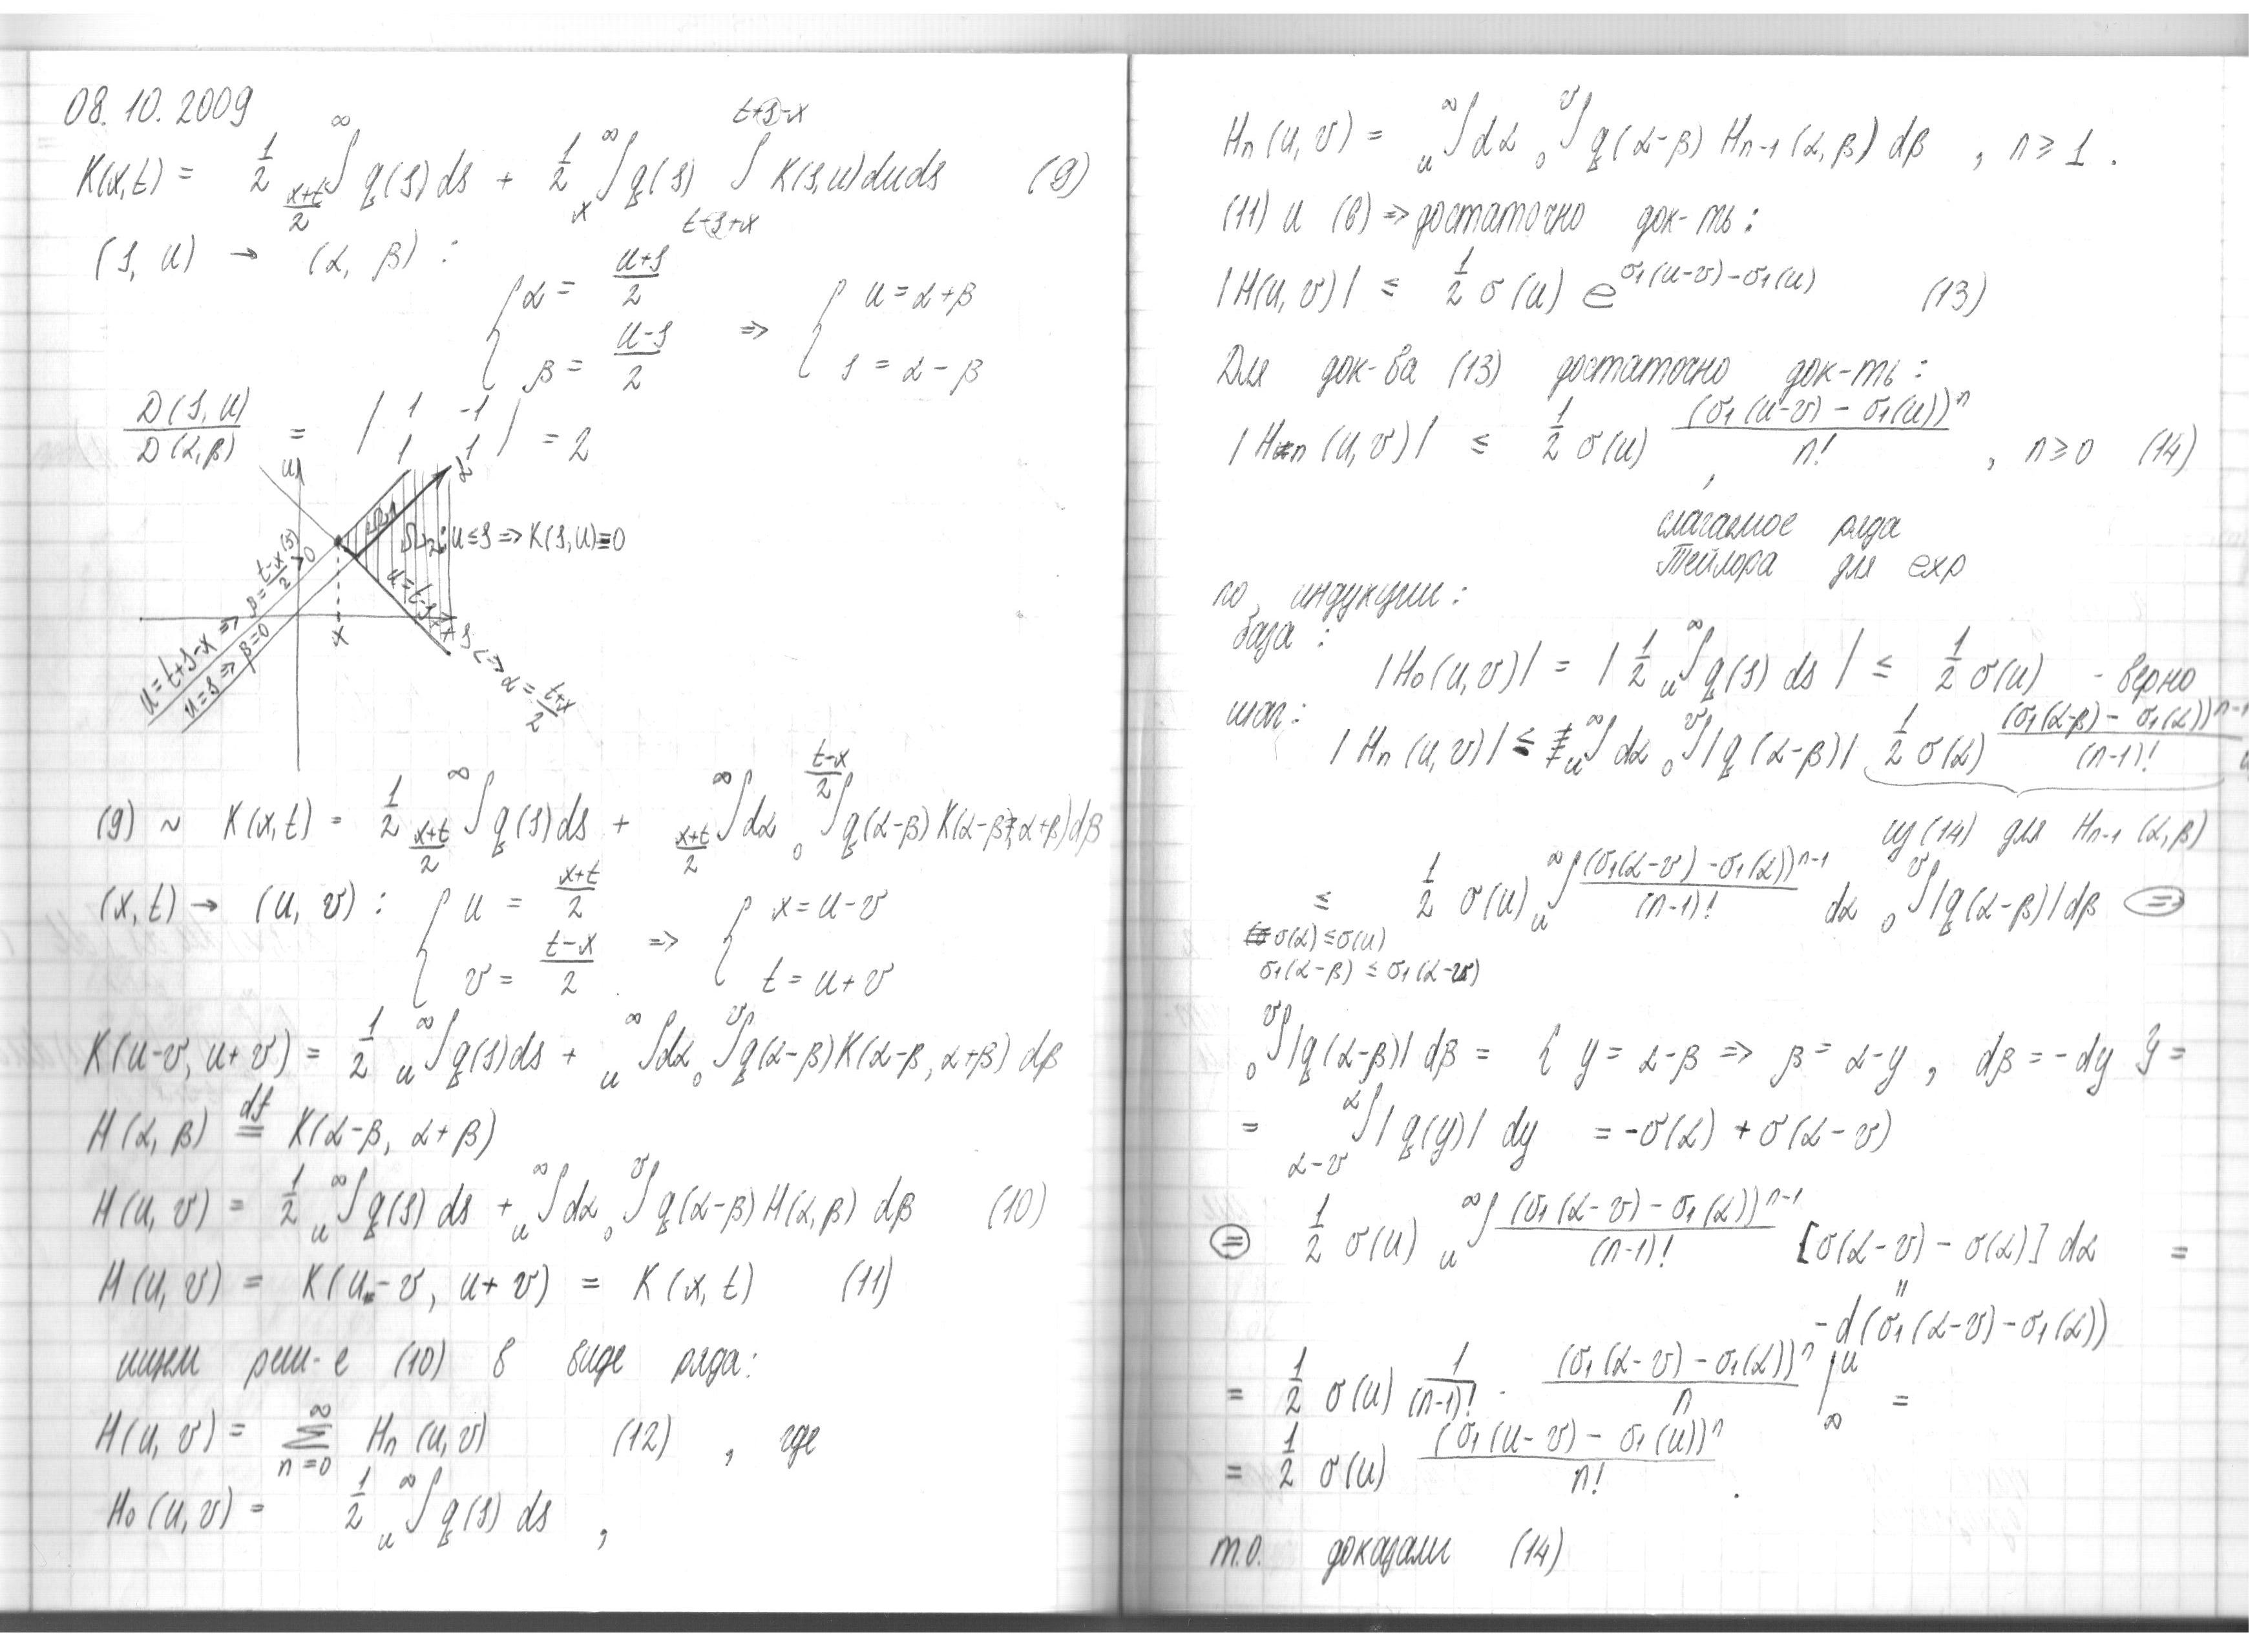 08.10.2009
K(x,t) = 1/2 ∫_{(x+t)/2}^{∞} q(s) ds + 1/2 ∫_{x}^{∞} q(s) ∫_{t-s+x}^{t+s-x} K(s,u) du ds (9)
(s, u) → (α, β) :
{ α = (u+s)/2 , β = (u-s)/2 ⇒ { u = α+β , s = α-β
D(s,u)/D(α,β) = | 1 -1 ; 1 1 | = 2
u
α
Ω1
Ω2: u ≤ s ⇒ K(s,u) ≡ 0
u = t+s-x ⇒ β = (t-x)/2 > 0
u = s ⇒ β = 0
x
u = t-s+x ⇔ α = (t+x)/2
(9) ~ K(x,t) = 1/2 ∫_{(x+t)/2}^{∞} q(s) ds + ∫_{(x+t)/2}^{∞} dα ∫_{0}^{(t-x)/2} q(α-β) K(α-β, α+β) dβ
(x,t) → (u, v) : { u = (x+t)/2 , v = (t-x)/2 ⇒ { x = u-v , t = u+v
K(u-v, u+v) = 1/2 ∫_{u}^{∞} q(s) ds + ∫_{u}^{∞} dα ∫_{0}^{v} q(α-β) K(α-β, α+β) dβ
H(α, β) =^{df} K(α-β, α+β)
H(u, v) = 1/2 ∫_{u}^{∞} q(s) ds + ∫_{u}^{∞} dα ∫_{0}^{v} q(α-β) H(α,β) dβ (10)
H(u, v) = K(u-v, u+v) = K(x, t) (11)
ищем реш-е (10) в виде ряда:
H(u, v) = Σ_{n=0}^{∞} Hn(u,v) (12) , где
H0(u,v) = 1/2 ∫_{u}^{∞} q(s) ds ,
Hn(u,v) = ∫_{u}^{∞} dα ∫_{0}^{v} q(α-β) Hn-1(α,β) dβ , n ≥ 1.
(11) и (6) ⇒ достаточно док-ть:
|H(u,v)| ≤ 1/2 σ(u) e^{σ1(u-v)-σ1(u)} (13)
Для док-ва (13) достаточно док-ть:
|Hn(u,v)| ≤ 1/2 σ(u) (σ1(u-v) - σ1(u))^n / n! , n ≥ 0 (14)
слагаемое ряда
Тейлора для exp
по индукции:
база:
|H0(u,v)| = | 1/2 ∫_{u}^{∞} q(s) ds | ≤ 1/2 σ(u) - верно
шаг:
|Hn(u,v)| ≤ ∫_{u}^{∞} dα ∫_{0}^{v} |q(α-β)| 1/2 σ(α) (σ1(α-β) - σ1(α))^{n-1} / (n-1)!
из (14) для Hn-1(α,β)
≤ 1/2 σ(u) ∫_{u}^{∞} (σ1(α-v) - σ1(α))^{n-1} / (n-1)! dα ∫_{0}^{v} |q(α-β)| dβ =
σ(α) ≤ σ(u)
σ1(α-β) ≤ σ1(α-v)
∫_{0}^{v} |q(α-β)| dβ = { y = α-β ⇒ β = α-y , dβ = -dy } =
= ∫_{α-v}^{α} |q(y)| dy = -σ(α) + σ(α-v)
= 1/2 σ(u) ∫_{u}^{∞} (σ1(α-v) - σ1(α))^{n-1} / (n-1)! [σ(α-v) - σ(α)] dα =
"
-d(σ1(α-v) - σ1(α))
= 1/2 σ(u) 1/(n-1)! · (σ1(α-v) - σ1(α))^n / n |_{∞}^{u} =
= 1/2 σ(u) (σ1(u-v) - σ1(u))^n / n! .
т.о. доказали (14)